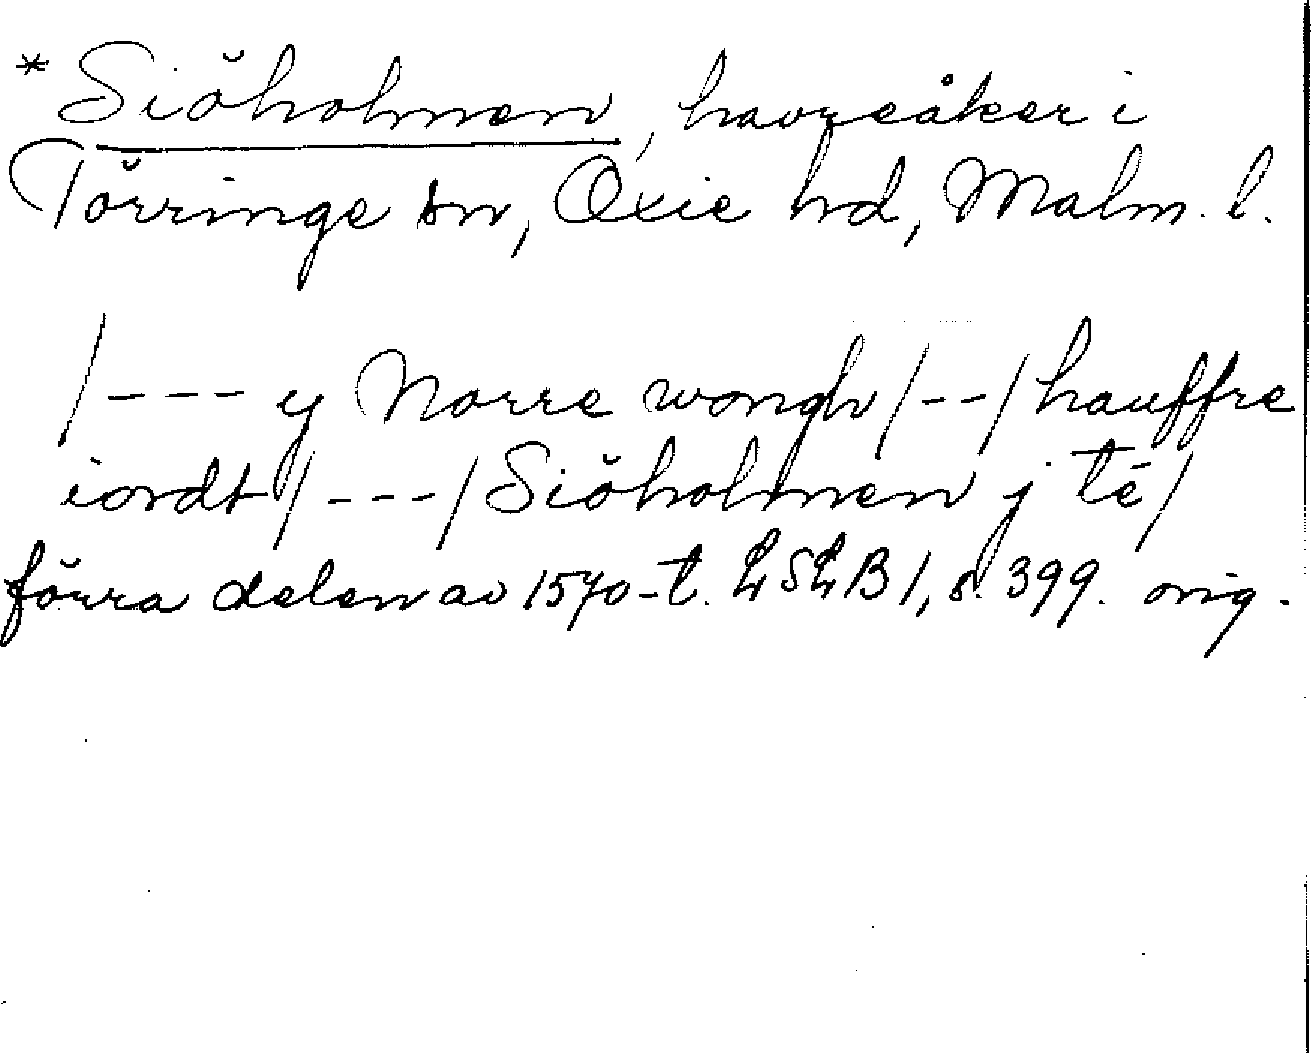 *Siöholmen, havreåker i
Törringe sn, Oxie hd, Malm. l.
/--- y Norre wongh /--/ hauffre
iordt /---/ Siöholmen j té/
förra delen av 1570-t. LSLB 1, s. 399. orig.